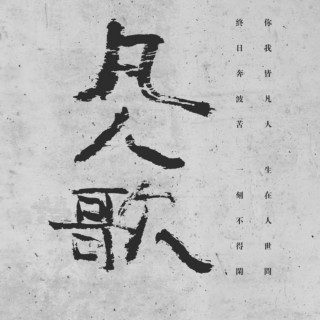 你我皆凡人 生在人世間
終日奔波苦 一刻不得閑
凡人歌